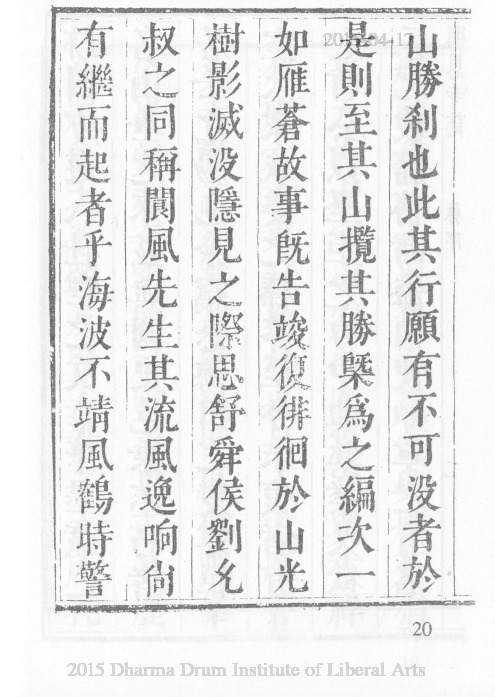 山勝刹也此其行願有不可没者於
是則至其山攬其勝槩爲之編次一
如雁蒼故事旣告竣復徘徊於山光
樹影滅没隱見之際思舒舜侯劉允
叔之同稱閬風先生其流風逸响尙
有繼而起者乎海波不靖風鶴時警
20
2015 Dharma Drum Institute of Liberal Arts